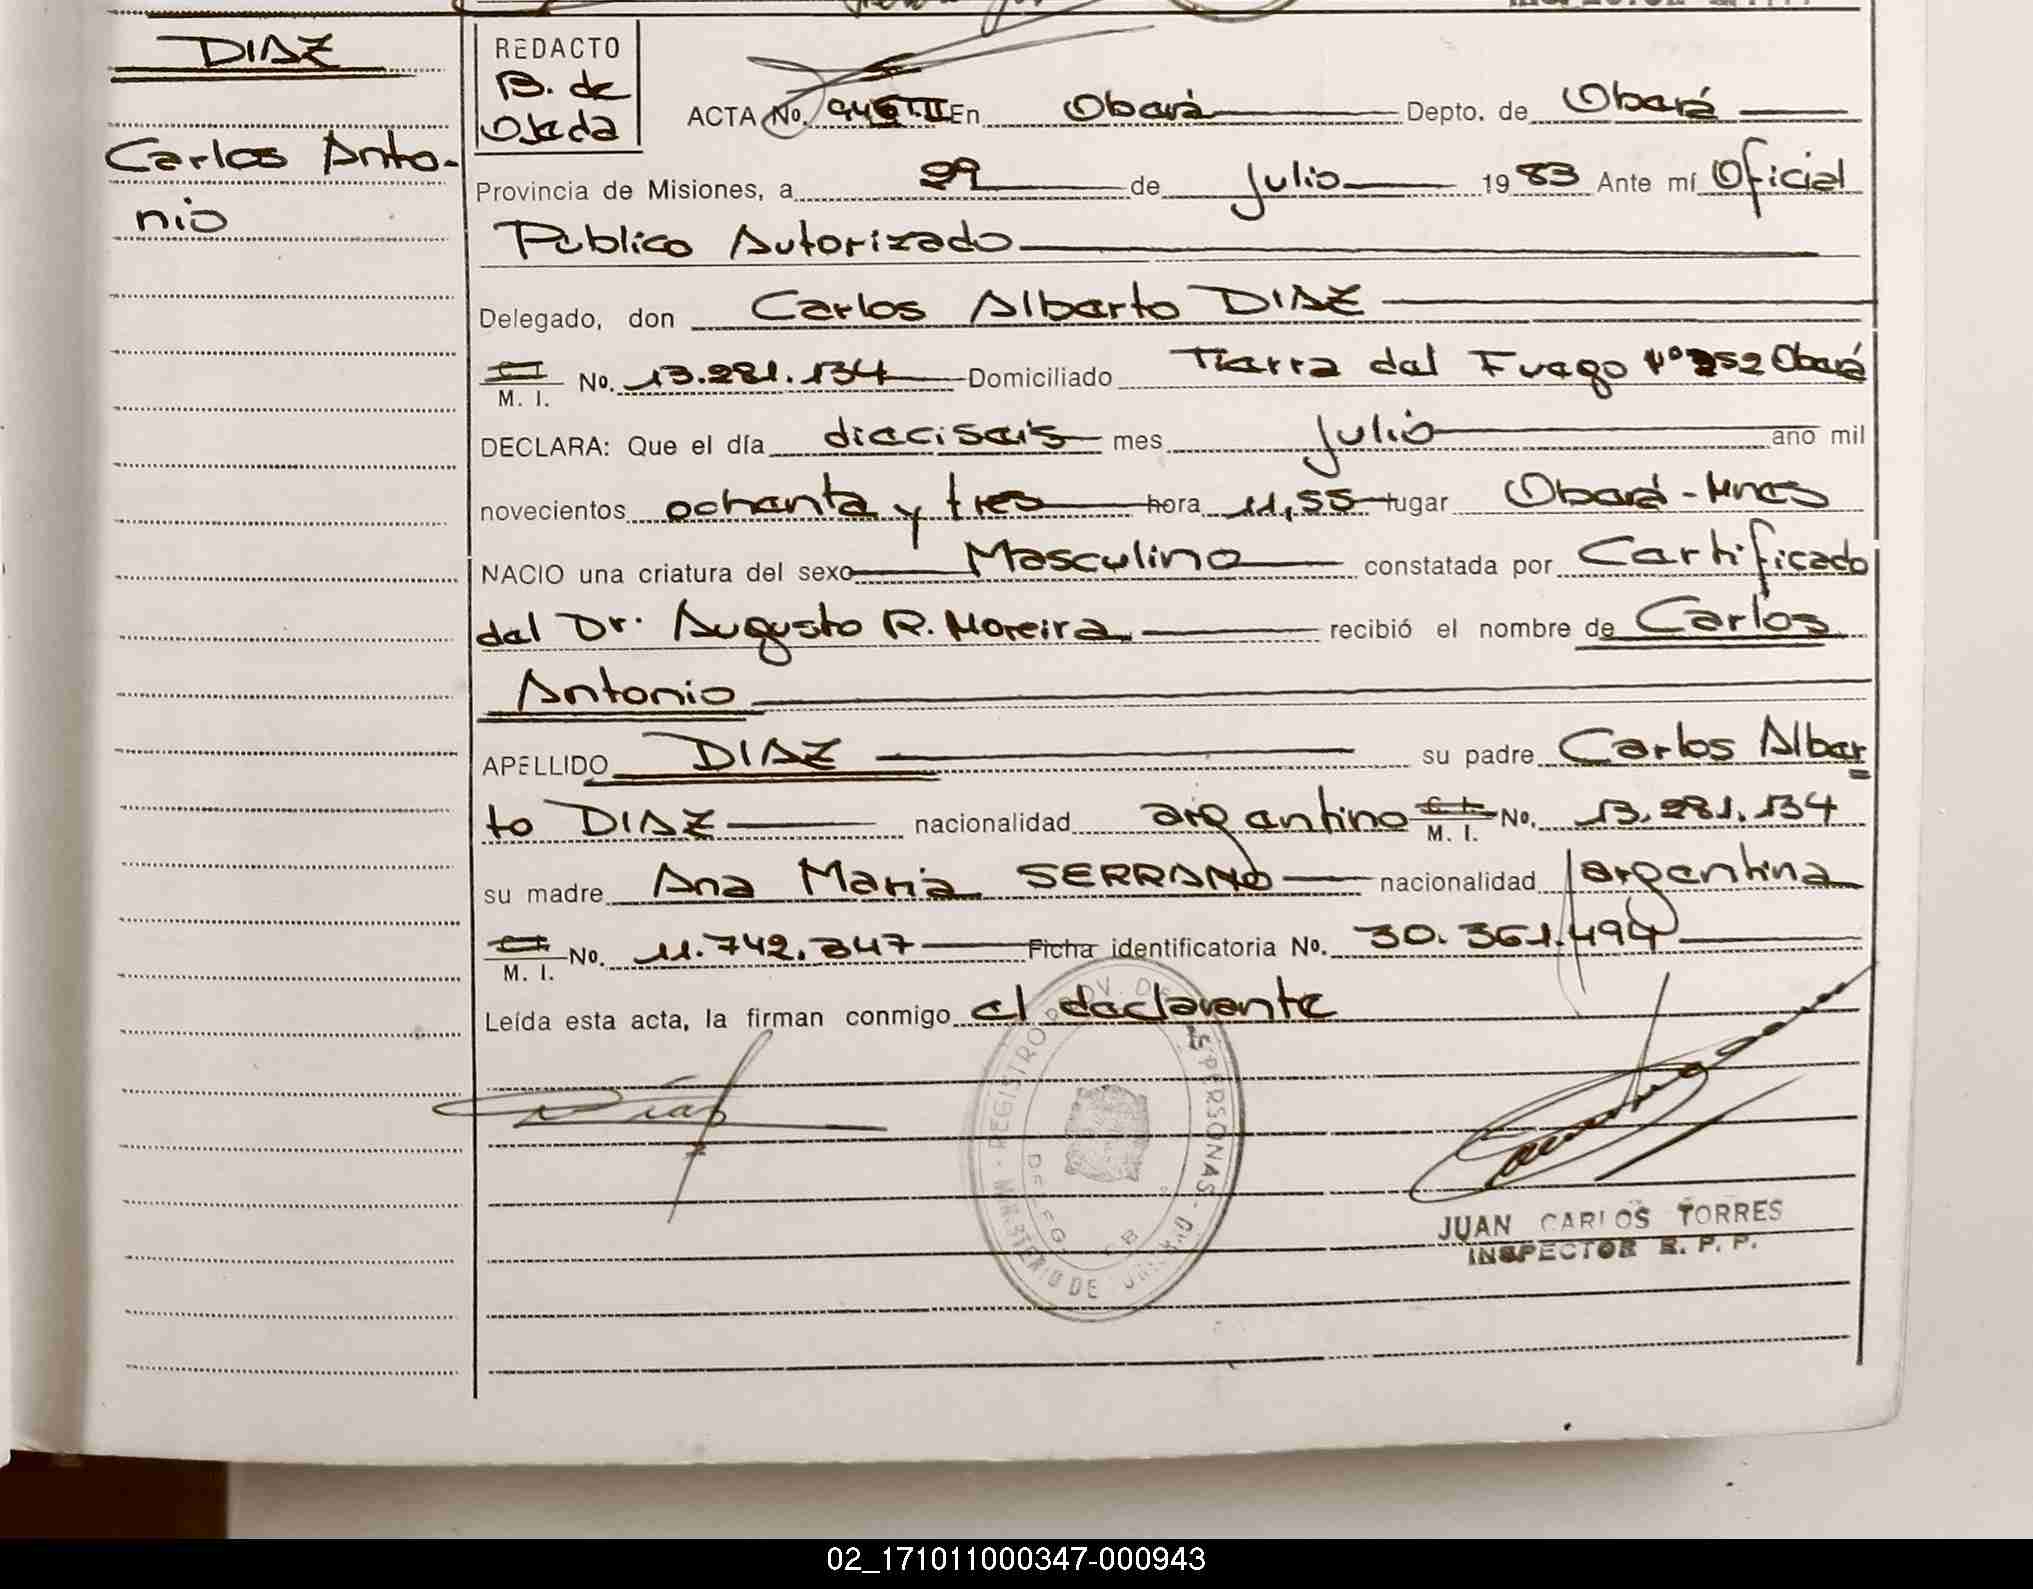 DIAZ
Carlos Anto-
nio
REDACTO
B. de
Ojeda
ACTA No. En Oberá Depto. de Oberá
Provincia de Misiones, a 29 de Julio 1983 Ante mí Oficial
Público Autorizado
Delegado, don Carlos Alberto DIAZ
M. I. No. 13.281.134 Domiciliado Tierra del Fuego Nº 252 Oberá
DECLARA: Que el día dieciseis mes Julio ano mil
novecientos ochenta y tres hora 11,55 lugar Oberá - Mnes
NACIO una criatura del sexo Masculino constatada por Certificado
del Dr. Augusto R. Moreira recibió el nombre de Carlos
Antonio
APELLIDO DIAZ su padre Carlos Alber
to DIAZ nacionalidad argentino C. I. M. I. No. 13.281.134
su madre Ana Maria SERRANO nacionalidad argentina
M. I. No. 11.742.347 Ficha identificatoria No. 30.361.494
Leída esta acta, la firman conmigo el declarante
Diaz
REGISTRO PROV. DE PERSONAS
MINISTERIO DE
JUAN CARLOS TORRES
INSPECTOR R. P. P.
02_171011000347-000943